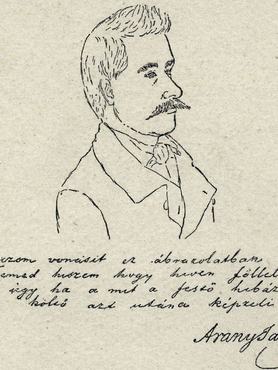 vonásit ez ábrázolatban
hiszem hogy hiven föllel
úgy ha a mit a festő hibáz
költő azt utána képzeli
Arany Já